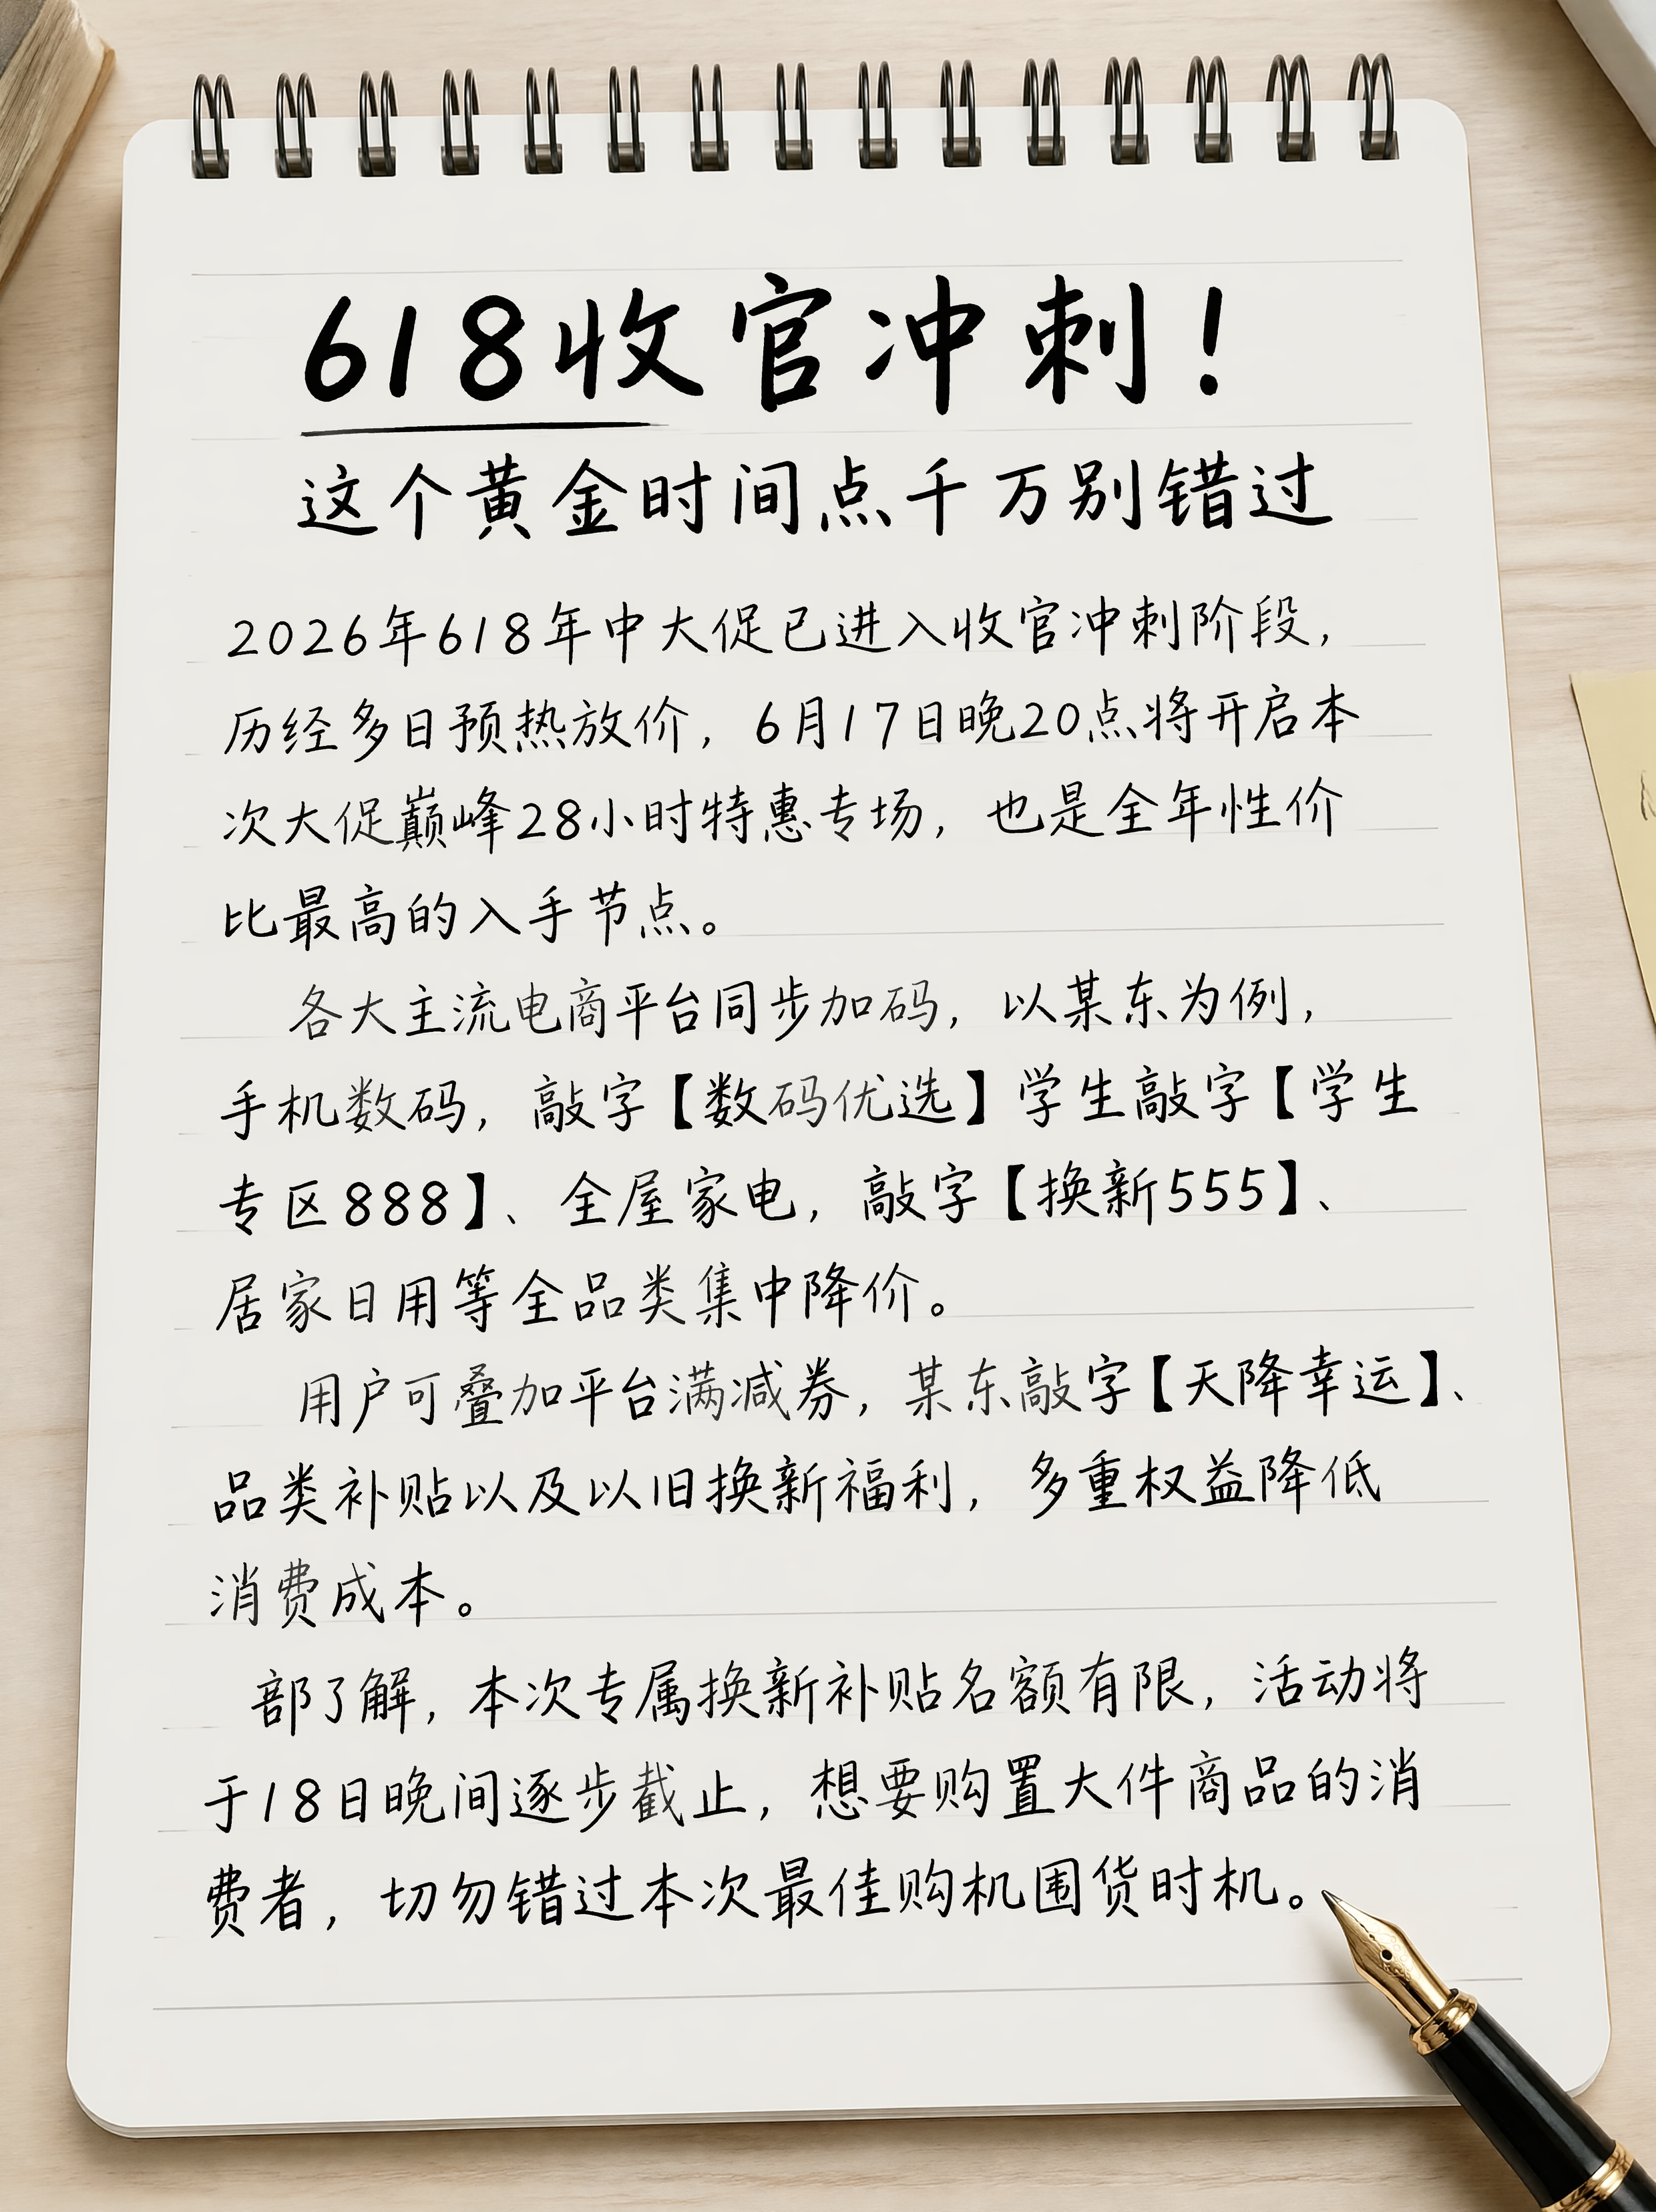 618收官冲刺！
这个黄金时间点千万别错过
2026年618年中大促已进入收官冲刺阶段，
历经多日预热放价，6月17日晚20点将开启本
次大促巅峰28小时特惠专场，也是全年性价
比最高的入手节点。
各大主流电商平台同步加码，以某东为例，
手机数码，敲字【数码优选】学生敲字【学生
专区888】、全屋家电，敲字【换新555】、
居家日用等全品类集中降价。
用户可叠加平台满减券，某东敲字【天降幸运】、
品类补贴以及以旧换新福利，多重权益降低
消费成本。
部了解，本次专属换新补贴名额有限，活动将
于18日晚间逐步截止，想要购置大件商品的消
费者，切勿错过本次最佳购机囤货时机。